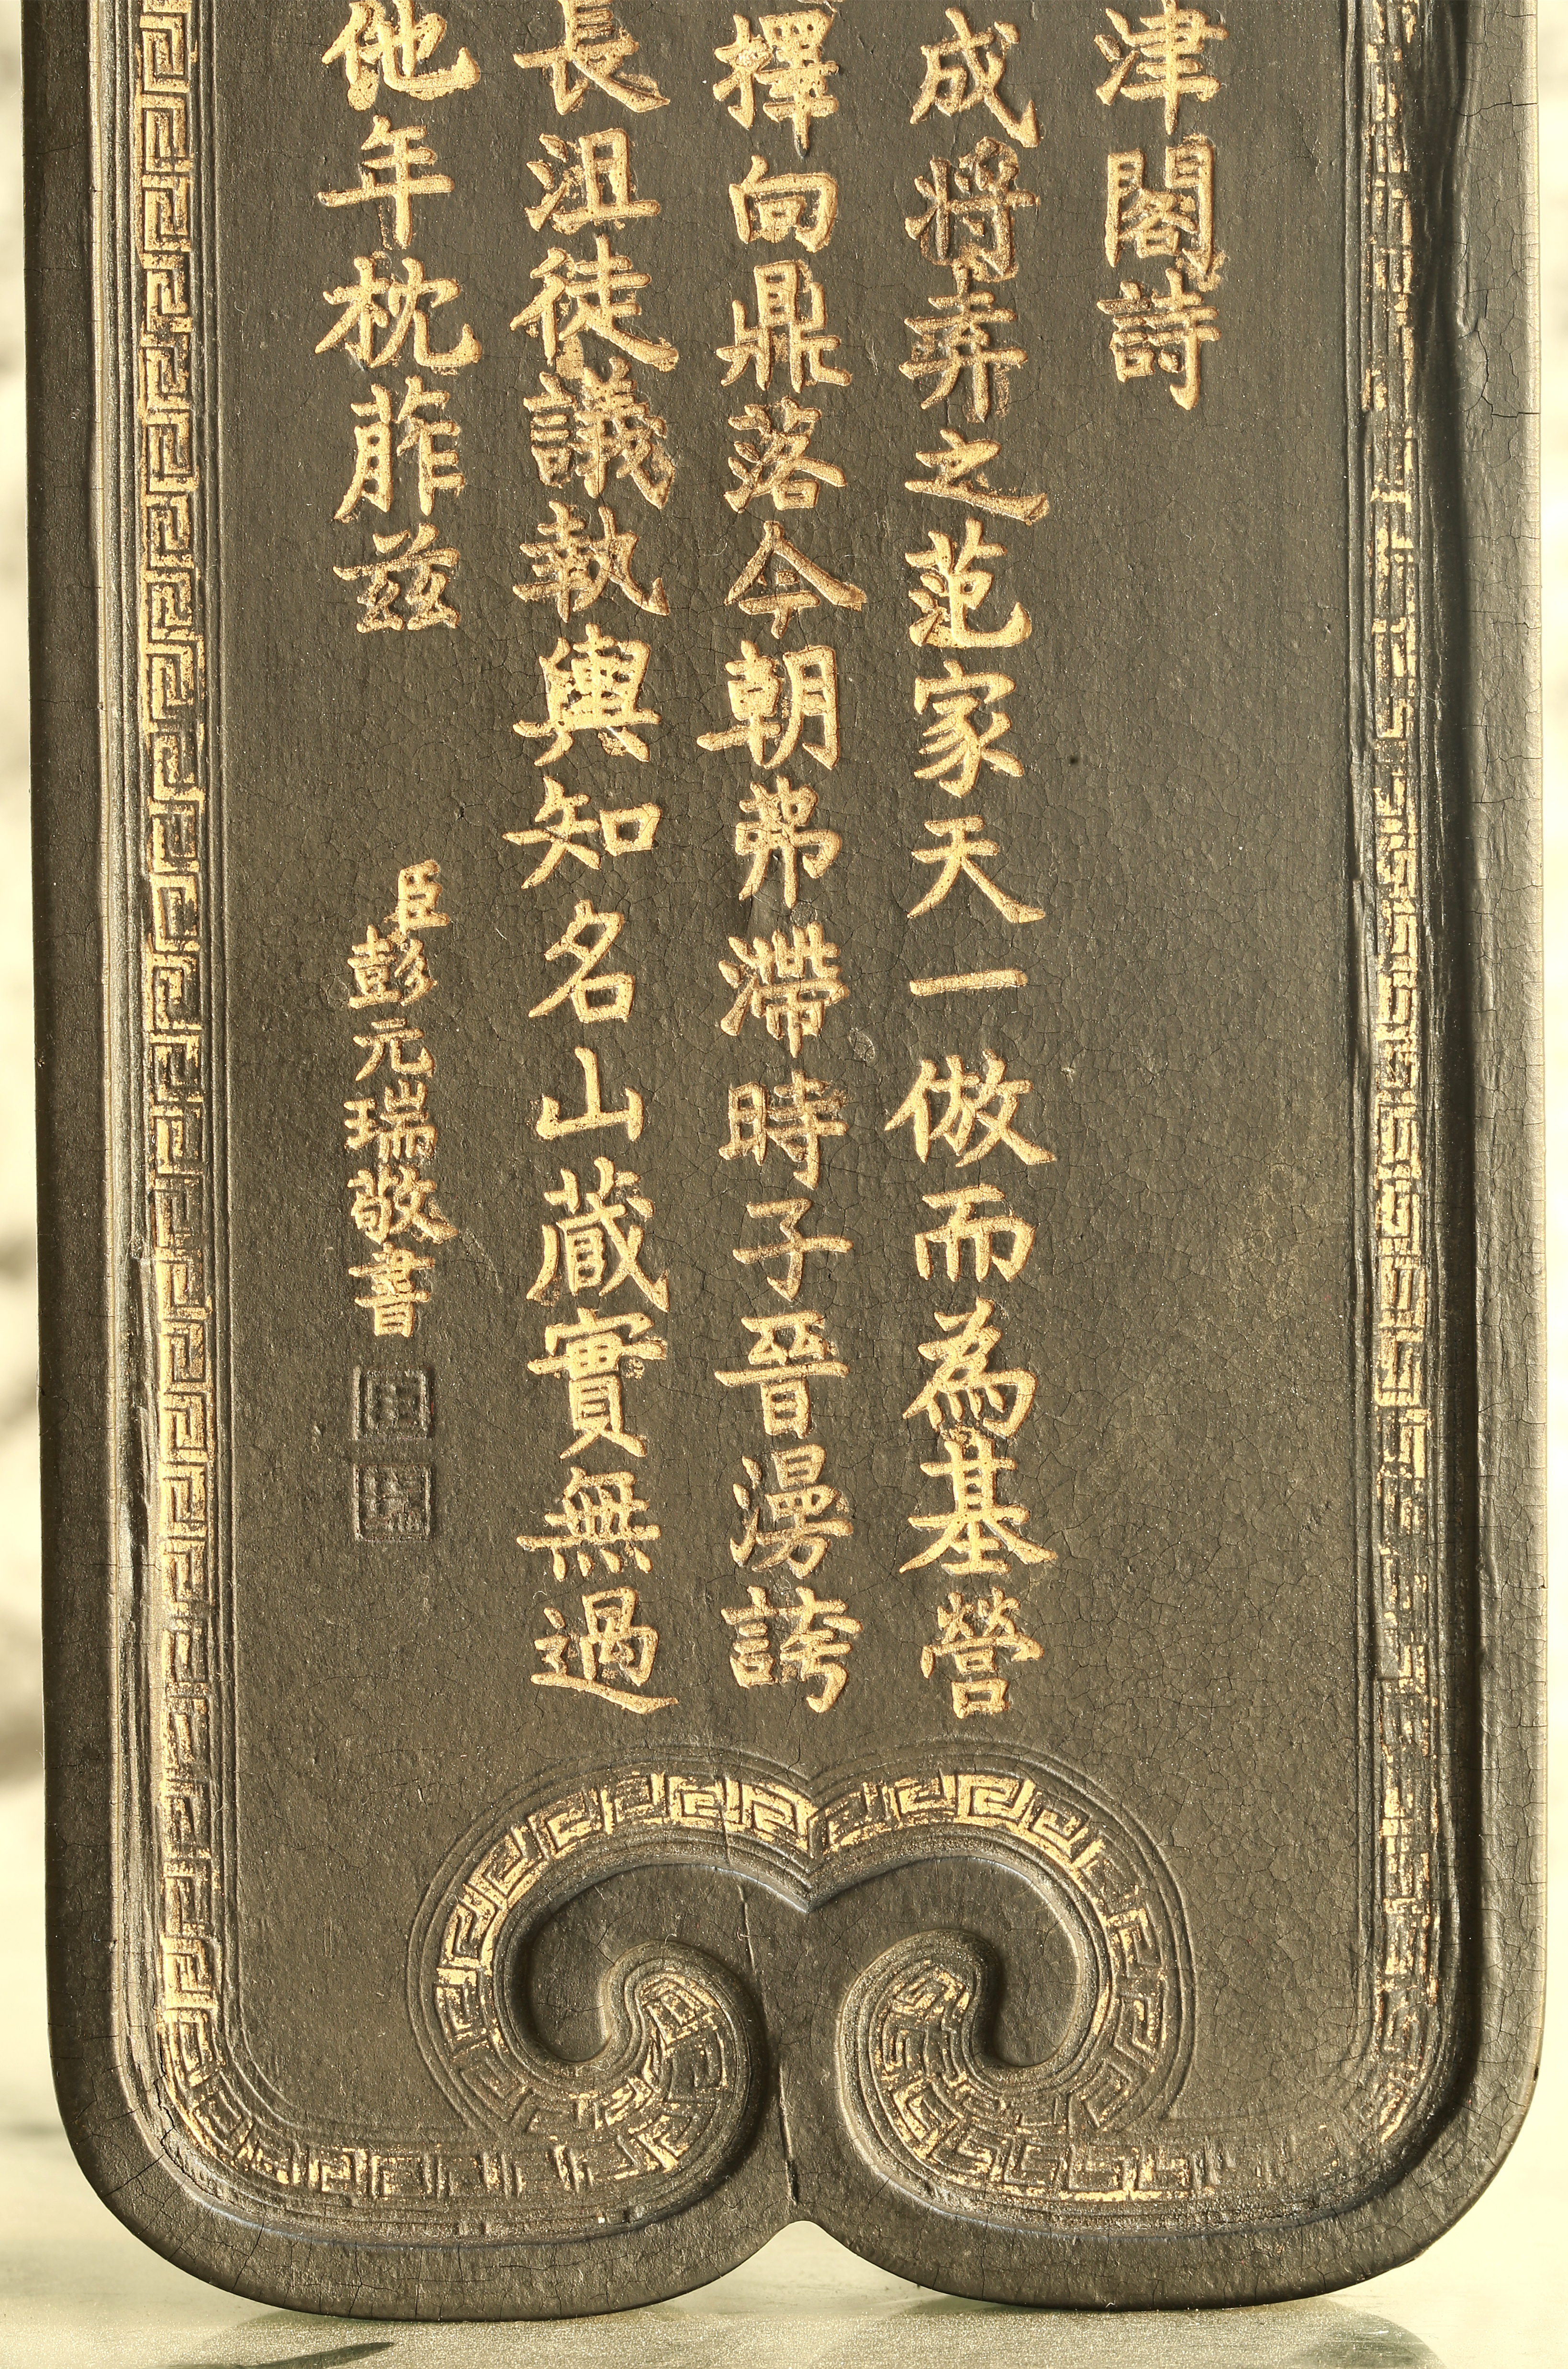 津閣詩
成將弆之范家天一倣而為基營
擇向鼎落今朝茀滯時子晉漫誇
長沮徒議執輿知名山蔵實無過
他年枕葄兹
臣彭元瑞敬書